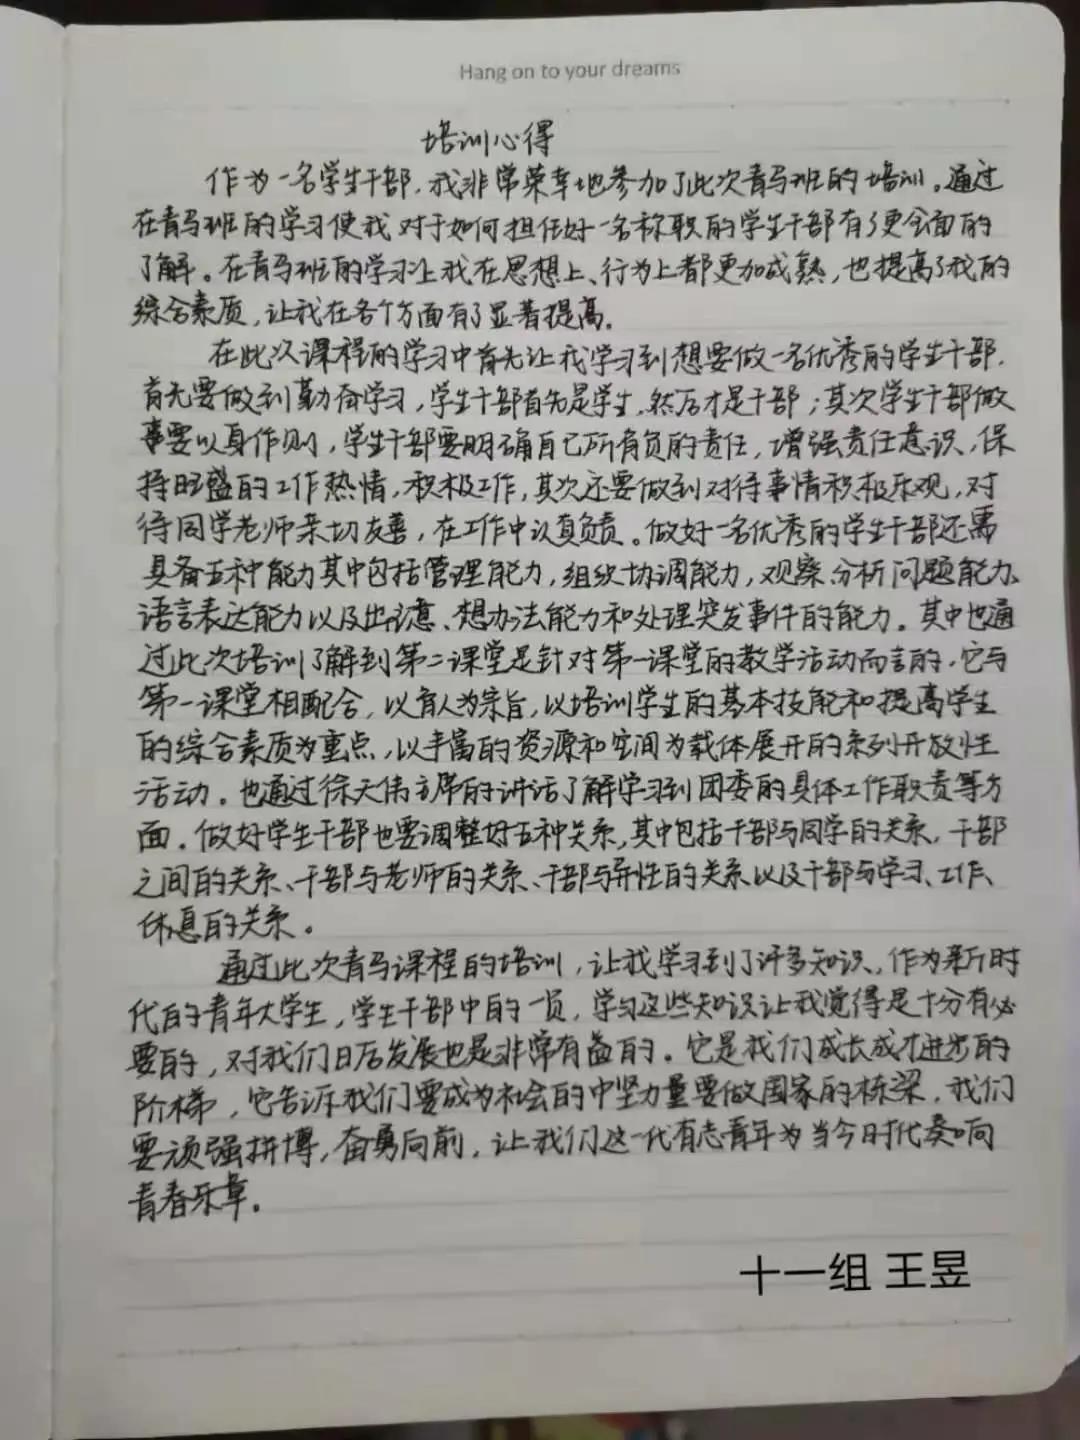 Hang on to your dreams
培训心得
作为一名学生干部,我非常荣幸地参加了此次青马班的培训。通过
在青马班的学习使我对于如何担任好一名称职的学生干部有了更全面的
了解。在青马班的学习让我在思想上、行为上都更加成熟,也提高了我的
综合素质,让我在各个方面有了显著提高。
在此次课程的学习中首先让我学习到想要做一名优秀的学生干部,
首先要做到勤奋学习,学生干部首先是学生,然后才是干部;其次学生干部做
事要以身作则,学生干部要明确自己所有负的责任,增强责任意识,保
持旺盛的工作热情,积极工作,其次还要做到对待事情积极乐观,对
待同学老师亲切友善,在工作中认真负责。做好一名优秀的学生干部还需
具备五种能力其中包括管理能力,组织协调能力,观察分析问题能力、
语言表达能力以及出主意、想办法能力和处理突发事件的能力。其中也通
过此次培训了解到第二课堂是针对第一课堂的教学活动而言的,它与
第一课堂相配合,以育人为宗旨,以培训学生的基本技能和提高学生
的综合素质为重点,以丰富的资源和空间为载体展开的系列开放性
活动。也通过徐天伟主席的讲话了解学习到团委的具体工作职责等方
面。做好学生干部也要调整好五种关系,其中包括干部与同学的关系,干部
之间的关系、干部与老师的关系、干部与异性的关系以及干部与学习、工作、
休息的关系。
通过此次青马课程的培训,让我学习到了许多知识,作为新时
代的青年大学生,学生干部中的一员,学习这些知识让我觉得是十分有必
要的,对我们日后发展也是非常有益的。它是我们成长成才进步的
阶梯,它告诉我们要成为社会的中坚力量要做国家的栋梁,我们
要顽强拼博,奋勇向前,让我们这一代有志青年为当今时代奏响
青春乐章。
十一组 王昱